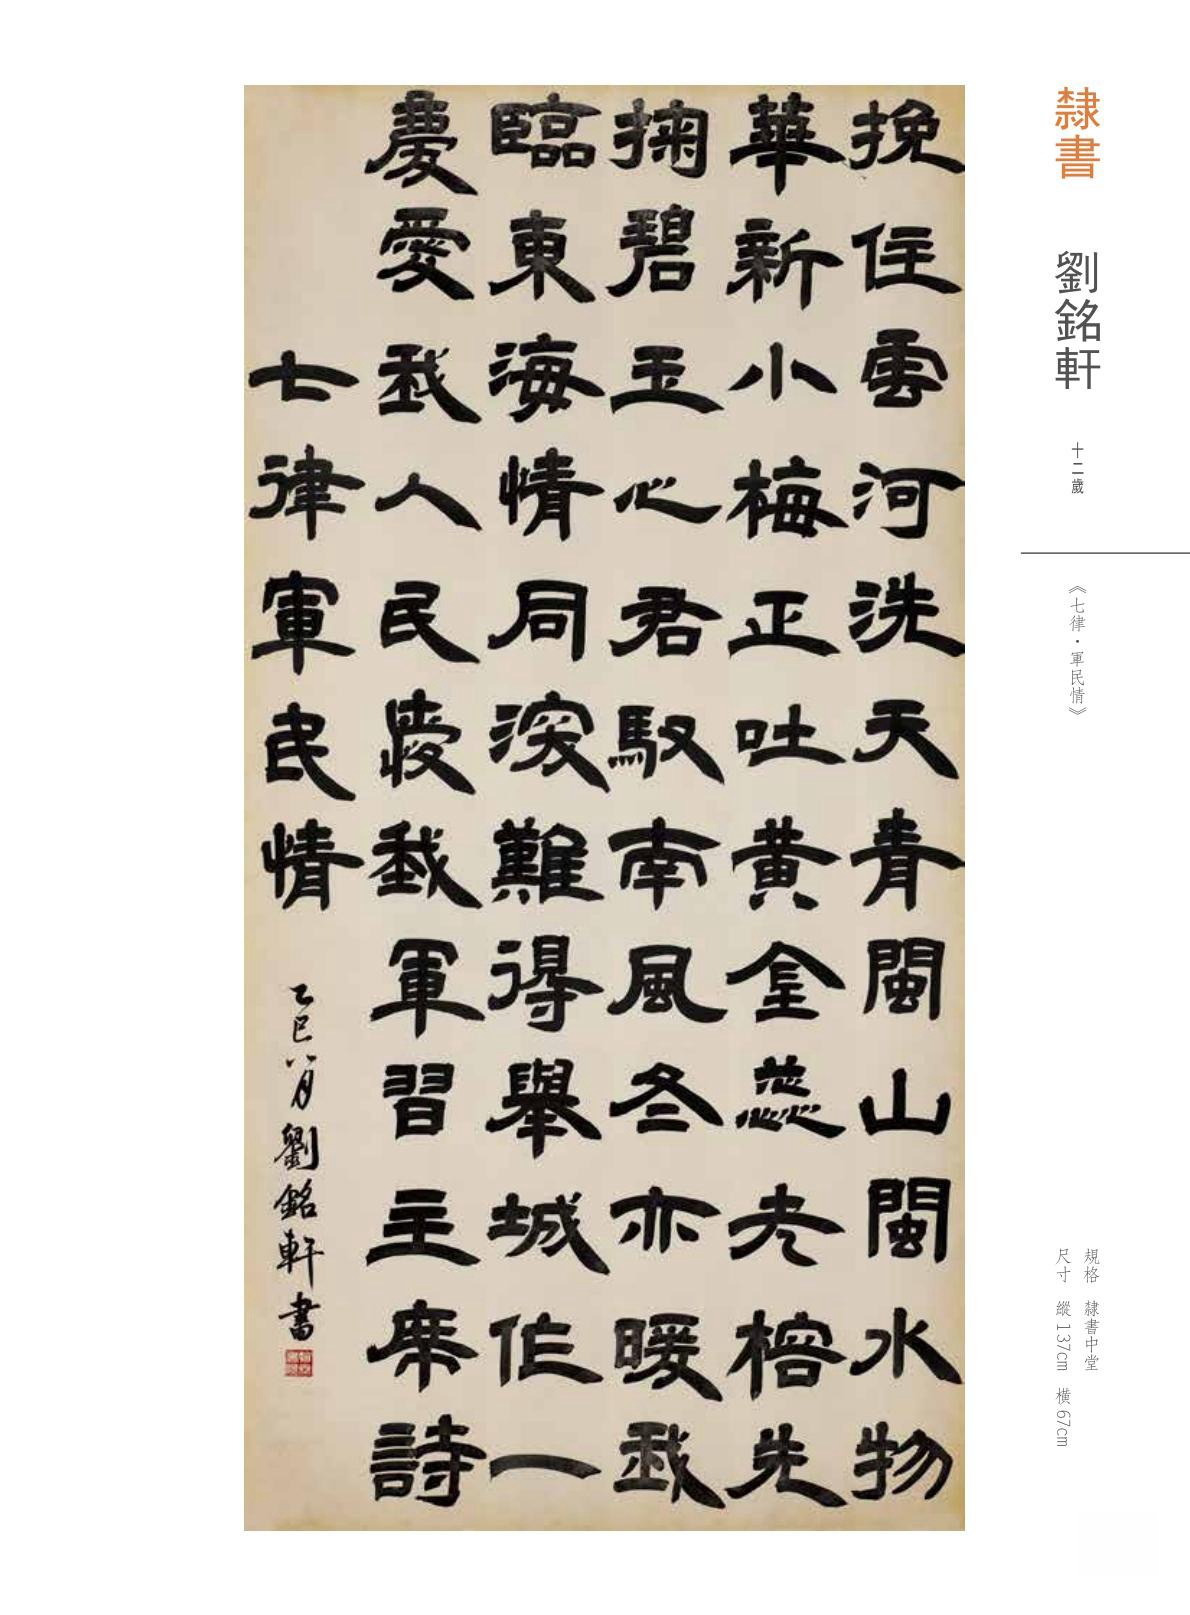 隸書
劉銘軒
十二歲
《七律·軍民情》
規格 隸書中堂
尺寸 縱137cm 橫67cm
挽住雲河洗天青閩山閩水物
華新小梅正吐黃金蕊老榕先
掬碧玉心君馭南風冬亦暖我
臨東海情同深難得舉城作一
慶愛我人民愛我軍習主席詩
七律軍民情
乙巳八月劉銘軒書